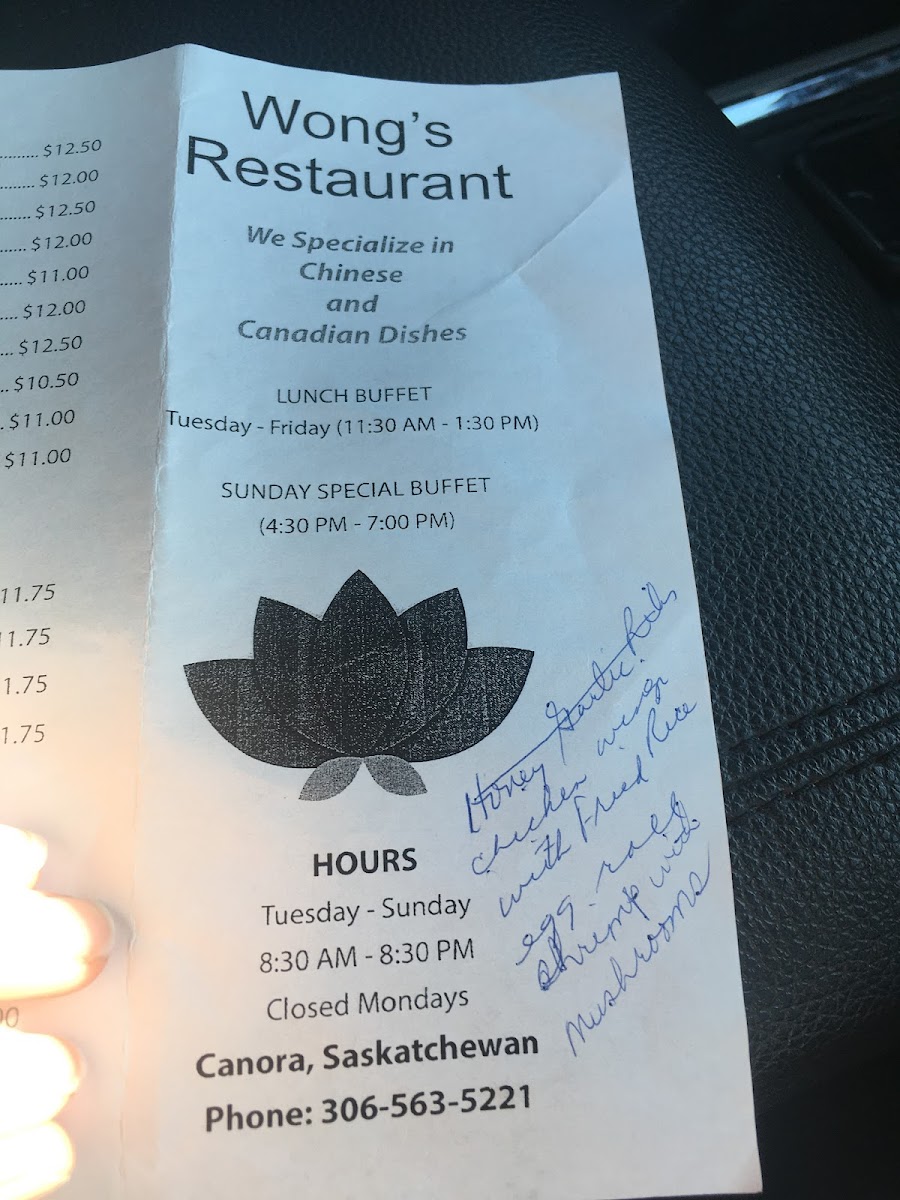 ......... $12.50
........ $12.00
....... $12.50
...... $12.00
..... $11.00
.... $12.00
... $12.50
.. $10.50
. $11.00
$11.00
11.75
11.75
1.75
1.75
00
Wong's
Restaurant
We Specialize in
Chinese
and
Canadian Dishes
LUNCH BUFFET
Tuesday - Friday (11:30 AM - 1:30 PM)
SUNDAY SPECIAL BUFFET
(4:30 PM - 7:00 PM)
Honey Garlic Ribs
chicken wings
with Fried Rice
egg roll
shrimp with
Mushrooms
HOURS
Tuesday - Sunday
8:30 AM - 8:30 PM
Closed Mondays
Canora, Saskatchewan
Phone: 306-563-5221